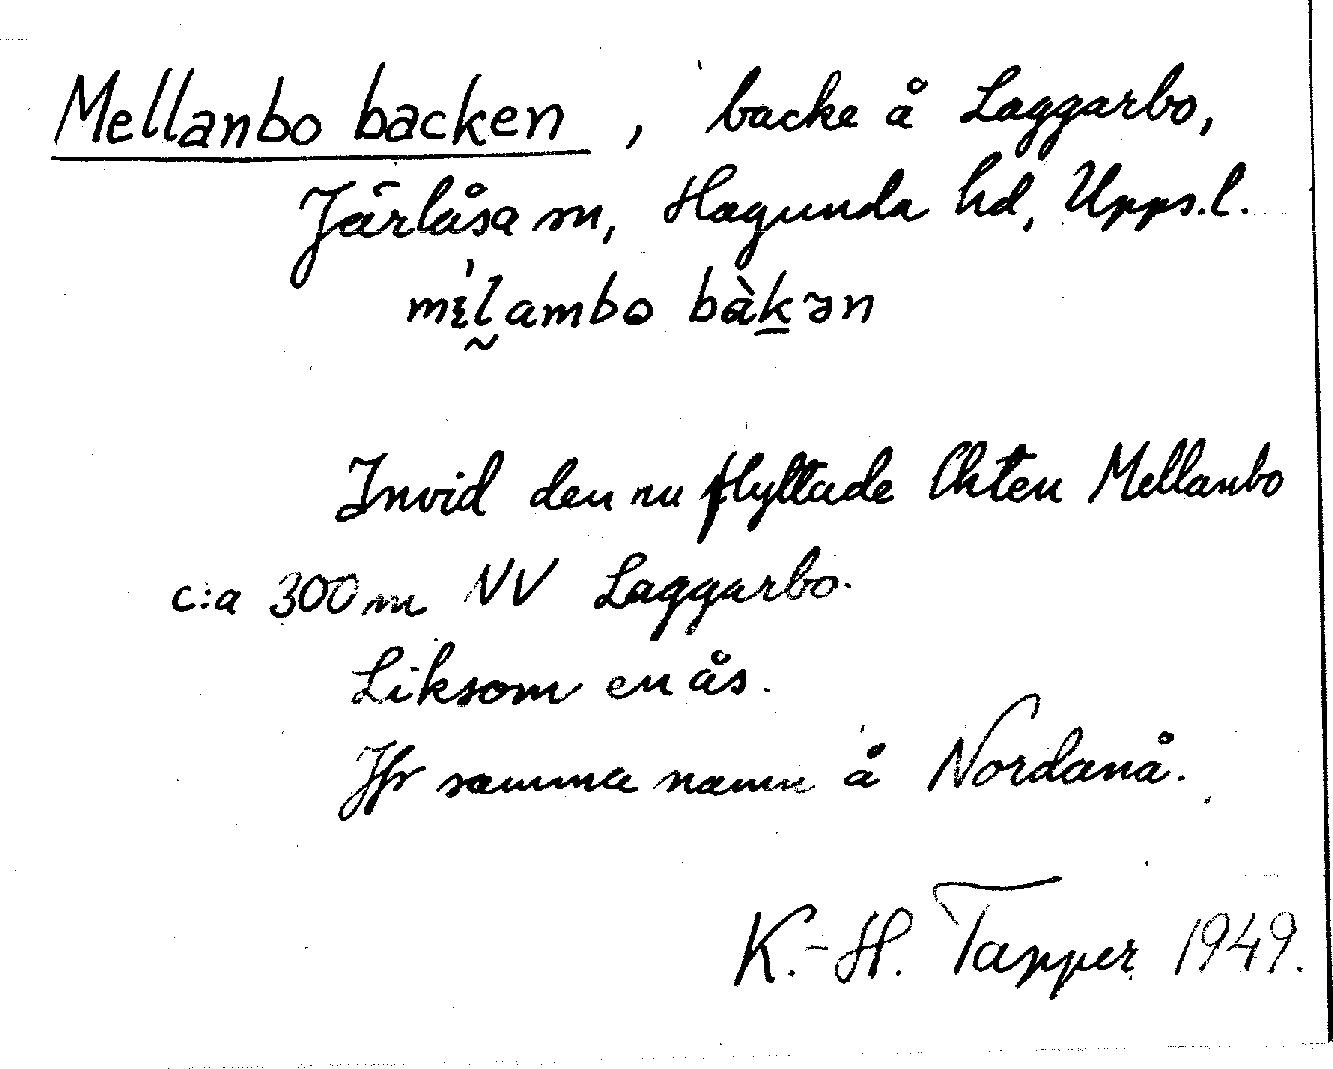 Mellanbo backen, backe å Laggarbo,
Järlåsa sn, Hagunda hd, Upps.l.
mɛ̀l̬ambo bàk̲ən
Invid den nu flyttade Chten Mellanbo
c:a 300 m NV Laggarbo.
Liksom en ås.
Jfr samma namn å Nordanå.
K.-H. Tapper 1949.